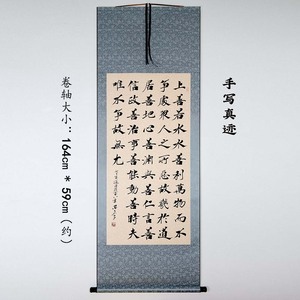 手写真迹
上善若水水善利萬物而不
争處衆人之所惡故幾於道
居善地心善淵與善仁言善
信政善治事善能動善時夫
唯不争故無尤
卷轴大小：164cm * 59cm（约）